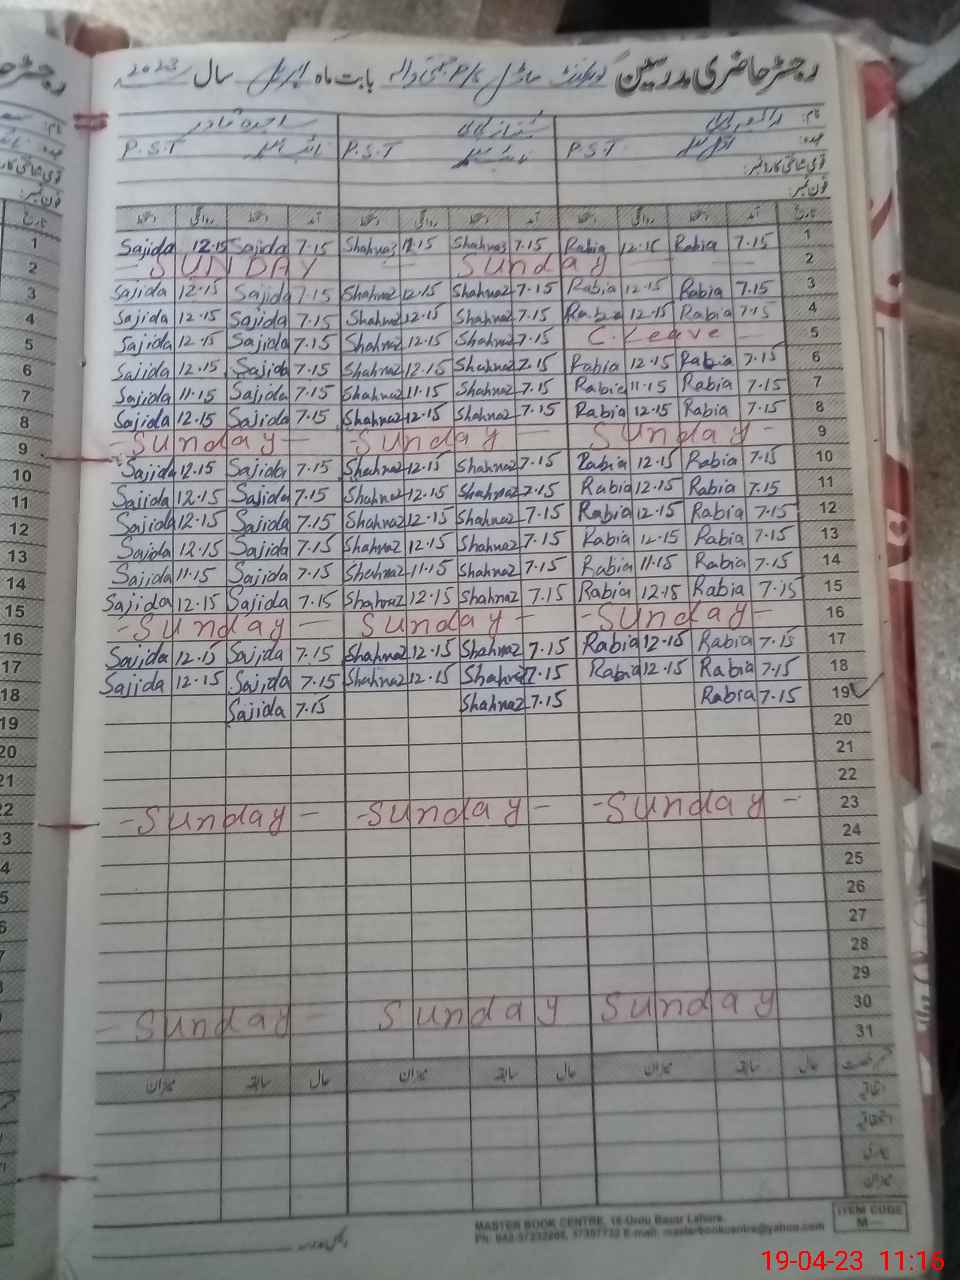 رجسٹر حاضری مدرسین گورنمنٹ ماڈل بابت ماہ اپریل سال 2023
نام:
عہدہ: P.S.T P.S.T P.S.T
قومی شناختی کارڈ نمبر:
فون نمبر:
تاریخ آمد دستخط روانگی دستخط آمد دستخط روانگی دستخط آمد دستخط روانگی دستخط
Sajida 12.15 Sajida 7.15 Shahnaz 12.15 Shahnaz 7.15 Rabia 12.15 Rabia 7.15 1
- SUNDAY - Sunday - 2
Sajida 12.15 Sajida 7.15 Shahnaz 12.15 Shahnaz 7.15 Rabia 12.15 Rabia 7.15 3
Sajida 12.15 Sajida 7.15 Shahnaz 12.15 Shahnaz 7.15 Rabia 12.15 Rabia 7.15 4
Sajida 12.15 Sajida 7.15 Shahnaz 12.15 Shahnaz 7.15 C. Leave - 5
Sajida 12.15 Sajida 7.15 Shahnaz 12.15 Shahnaz 7.15 Rabia 12.15 Rabia 7.15 6
Sajida 11.15 Sajida 7.15 Shahnaz 11.15 Shahnaz 7.15 Rabia 11.15 Rabia 7.15 7
Sajida 12.15 Sajida 7.15 Shahnaz 12.15 Shahnaz 7.15 Rabia 12.15 Rabia 7.15 8
- Sunday - - Sunday - - Sunday - 9
Sajida 12.15 Sajida 7.15 Shahnaz 12.15 Shahnaz 7.15 Rabia 12.15 Rabia 7.15 10
Sajida 12.15 Sajida 7.15 Shahnaz 12.15 Shahnaz 7.15 Rabia 12.15 Rabia 7.15 11
Sajida 12.15 Sajida 7.15 Shahnaz 12.15 Shahnaz 7.15 Rabia 12.15 Rabia 7.15 12
Sajida 12.15 Sajida 7.15 Shahnaz 12.15 Shahnaz 7.15 Rabia 12.15 Rabia 7.15 13
Sajida 11.15 Sajida 7.15 Shahnaz 11.15 Shahnaz 7.15 Rabia 11.15 Rabia 7.15 14
Sajida 12.15 Sajida 7.15 Shahnaz 12.15 Shahnaz 7.15 Rabia 12.15 Rabia 7.15 15
- Sunday - Sunday - - Sunday - 16
Sajida 12.15 Sajida 7.15 Shahnaz 12.15 Shahnaz 7.15 Rabia 12.15 Rabia 7.15 17
Sajida 12.15 Sajida 7.15 Shahnaz 12.15 Shahnaz 7.15 Rabia 12.15 Rabia 7.15 18
Sajida 7.15 Shahnaz 7.15 Rabia 7.15 19
20
21
22
- Sunday - - Sunday - - Sunday - 23
24
25
26
27
28
29
- Sunday - Sunday Sunday 30
31
حال سابقہ میزان حال سابقہ میزان حال سابقہ میزان
اتفاقیہ
میزان
MASTER BOOK CENTRE, 16-Urdu Bazar Lahore.
E-mail: masterbookcentre@yahoo.com
ITEM CODE
M—
19-04-23 11:16